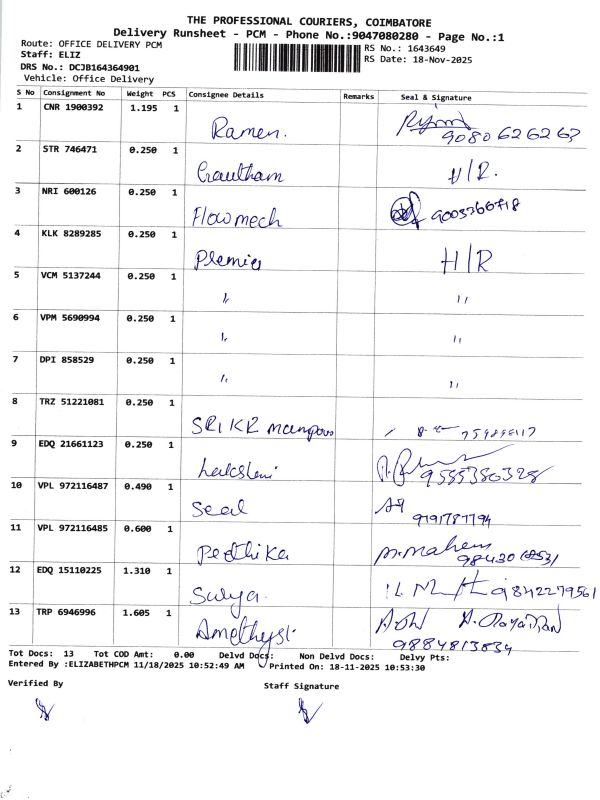 THE PROFESSIONAL COURIERS, COIMBATORE
Delivery Runsheet - PCM - Phone No.:9047080280 - Page No.:1
Route: OFFICE DELIVERY PCM
RS No.: 1643649
Staff: ELIZ
RS Date: 18-Nov-2025
DRS No.: DCJB164364901
Vehicle: Office Delivery
S No Consignment No Weight PCS Consignee Details Remarks Seal & Signature
1 CNR 1900392 1.195 1 Ramen. 9080626263
2 STR 746471 0.250 1 Gautham H/R.
3 NRI 600126 0.250 1 Flowmech
4 KLK 8289285 0.250 1 Premier H/R
5 VCM 5137244 0.250 1 " "
6 VPM 5690994 0.250 1 " "
7 DPI 858529 0.250 1 " "
8 TRZ 51221081 0.250 1 SRI KR
9 EDQ 21661123 0.250 1
10 VPL 972116487 0.490 1 Seal 9191787794
11 VPL 972116485 0.600 1 M. Mahes
12 EDQ 15110225 1.310 1 Surya. 9842279561
13 TRP 6946996 1.605 1 Amethyst. 9884813834
Tot Docs: 13 Tot COD Amt: 0.00 Delvd Docs: Non Delvd Docs: Delvy Pts:
Entered By :ELIZABETHPCM 11/18/2025 10:52:49 AM Printed On: 18-11-2025 10:53:30
Verified By Staff Signature